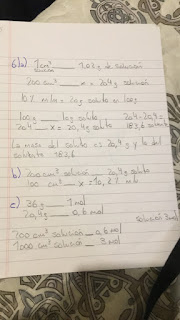 6) a) 1cm³ ___ 1,02 g de solución
solución
200 cm³ ___ x = 204 g solución
10% m/m = 10g soluto en 100g
100g ___ 10g soluto 204 - 20,4 =
204 ___ x = 20,4g soluto 183,6 solvente
La masa del soluto = 20,4g y la del
solvente 183,6
b) 200 cm³ solución ___ 20,4g soluto
100 cm³ ___ x = 10,2 % m/v
c) 36g ___ 1 mol
20,4g ___ 0,6 mol
solución 3 molar
200 cm³ solución ___ 0,6 mol
1000 cm³ solución ___ 3 mol